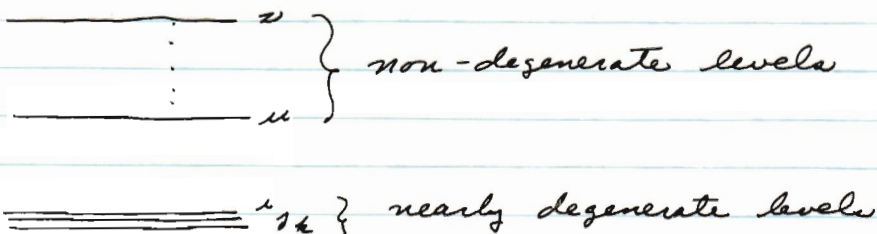 v } non-degenerate levels
u
i j k } nearly degenerate levels